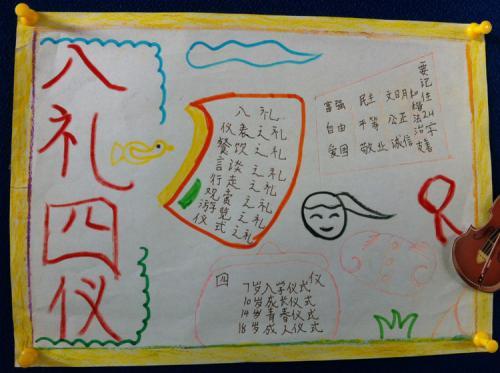 八礼四仪
八礼
仪表之礼
餐饮之礼
言谈之礼
行走之礼
观赏之礼
游览之礼
仪式之礼
要记住24字
富强 民主 文明 和谐
自由 平等 公正 法治
爱国 敬业 诚信 友善
四仪
7岁入学仪式
10岁成长仪式
14岁青春仪式
18岁成人仪式